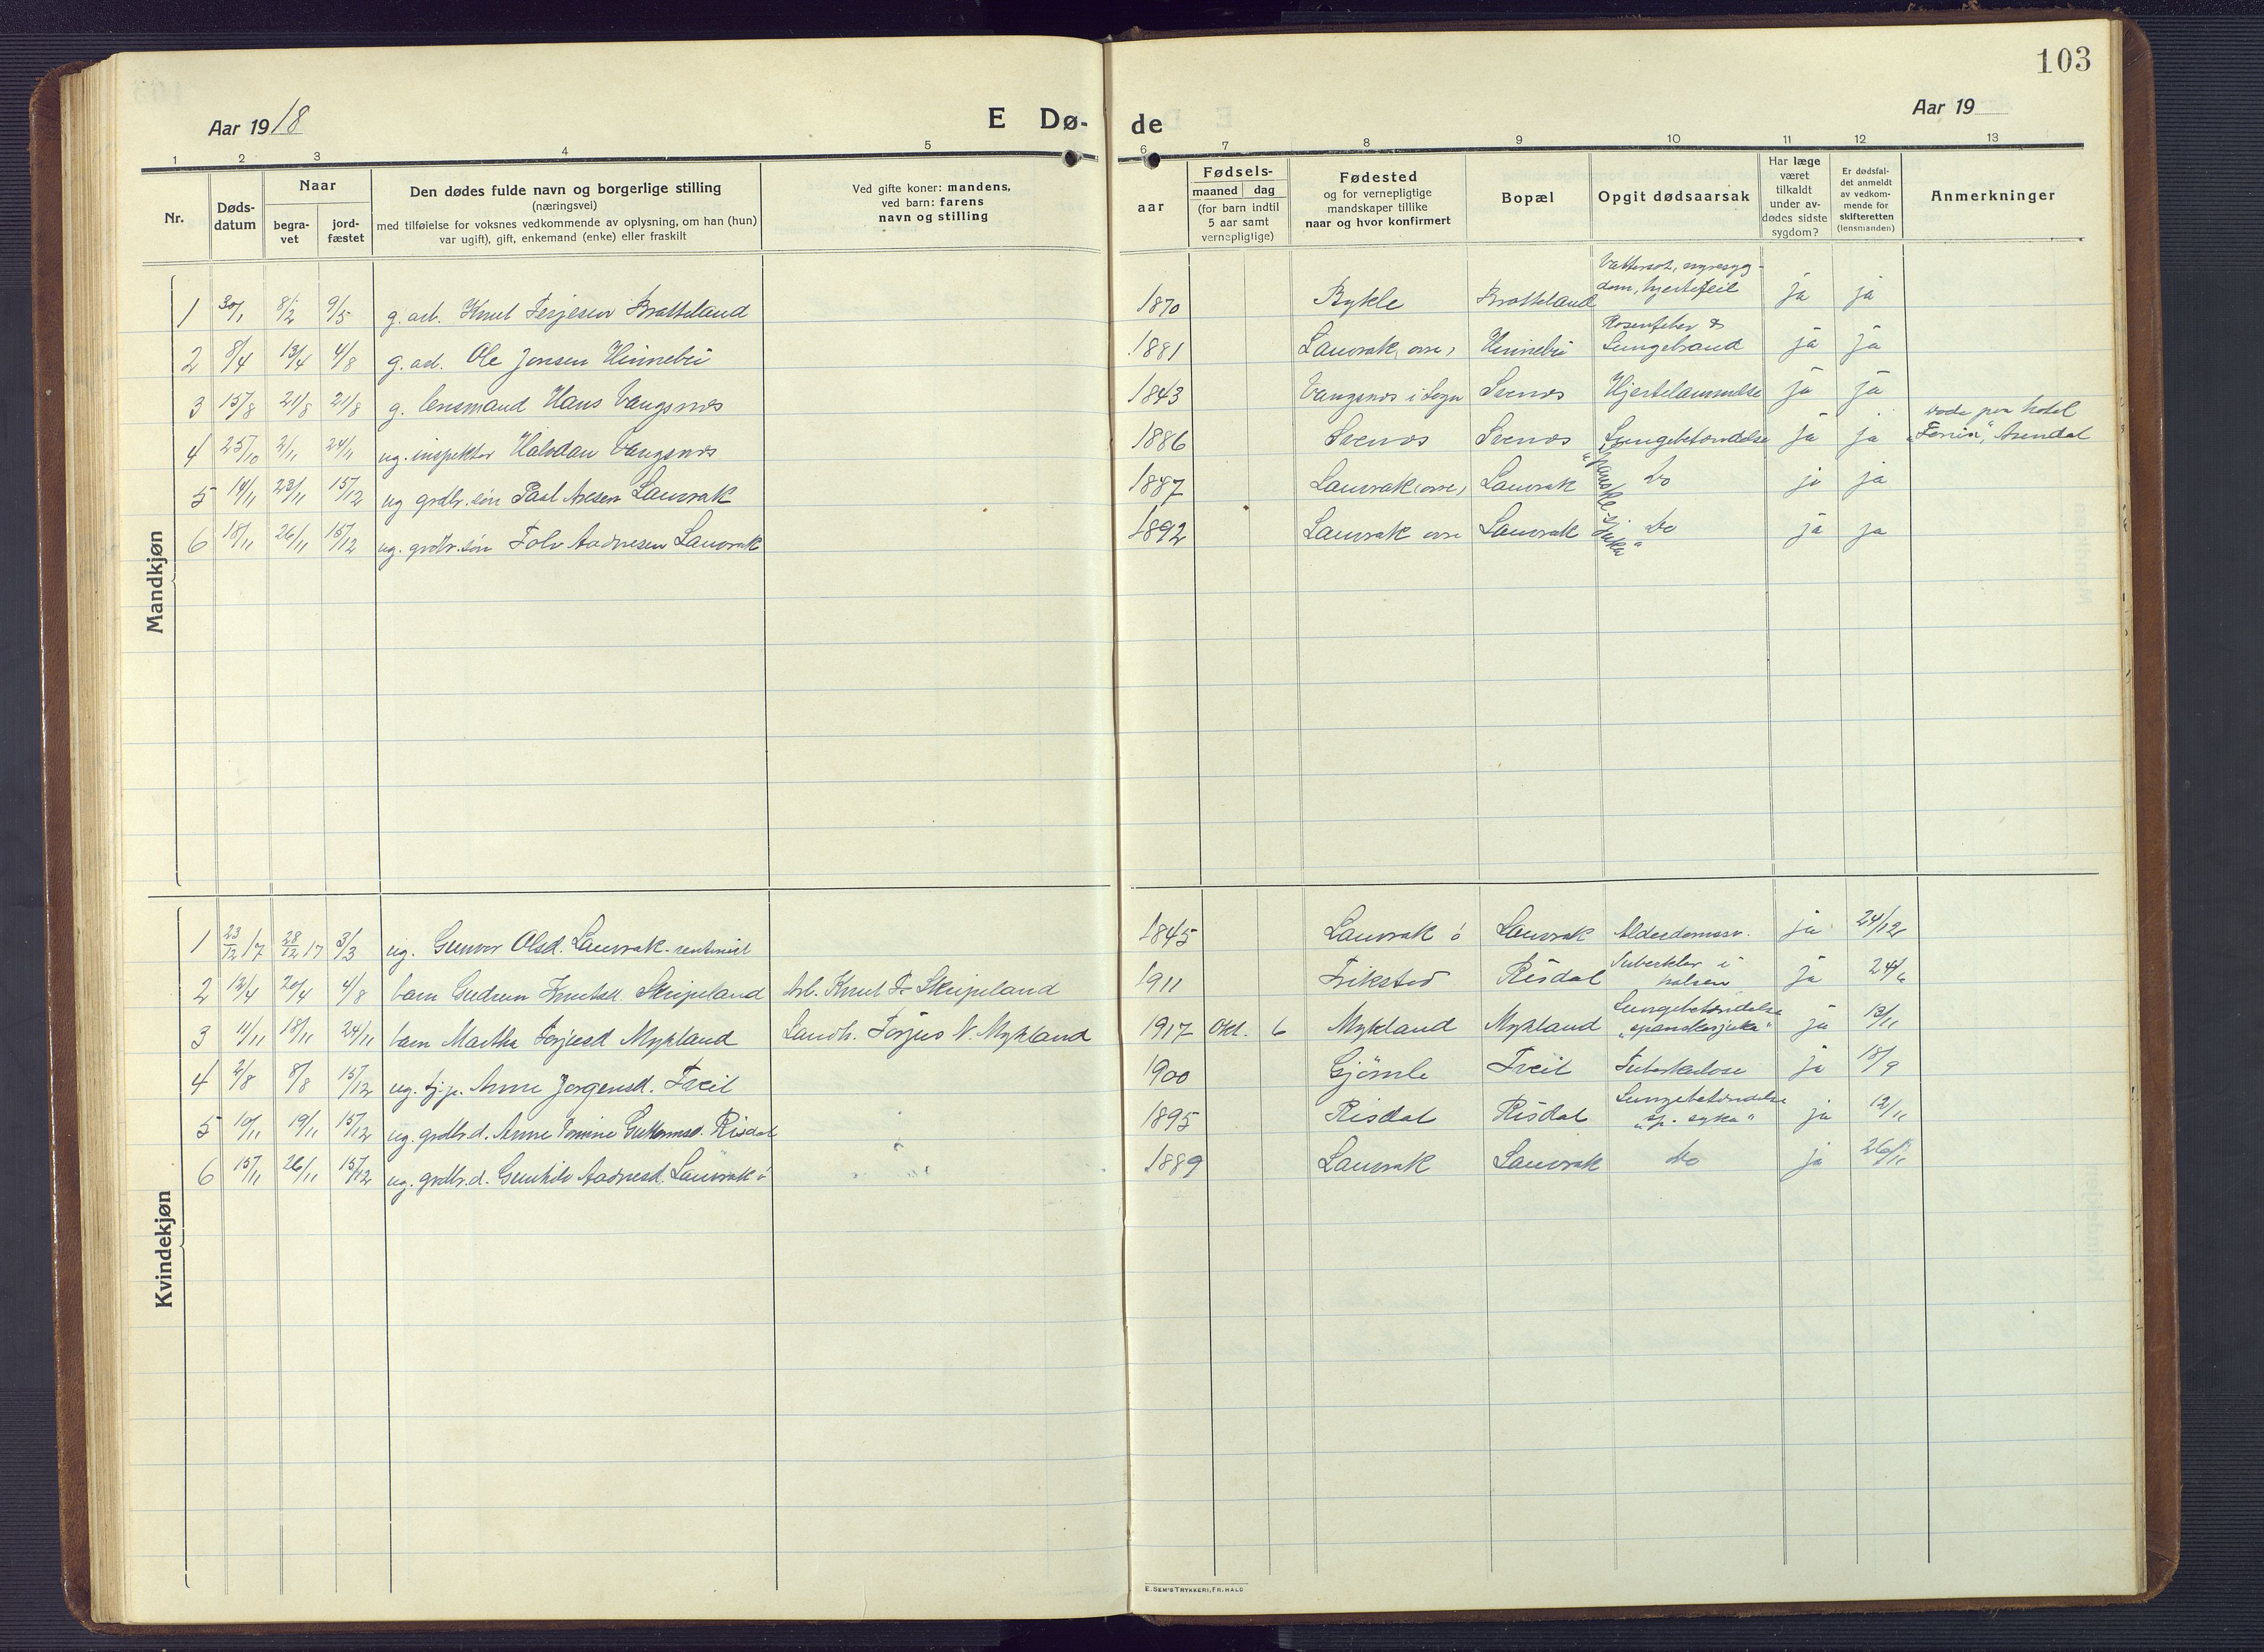 103
Aar 1918
E Dø-
de
Aar 19
1 2 3 4 5 6 7 8 9 10 11 12 13
Nr.
Døds-
datum
Naar
begra-
vet
jord-
fæstet
Den dødes fulde navn og borgerlige stilling
(næringsvei)
med tilføielse for voksnes vedkommende av oplysning, om han (hun)
var ugift), gift, enkemand (enke) eller fraskilt
Ved gifte koner: mandens,
ved barn: farens
navn og stilling
aar
Fødsels-
maaned dag
(for barn indtil
5 aar samt
vernepligtige)
Fødested
og for vernepligtige
mandskaper tillike
naar og hvor konfirmert
Bopæl
Opgit dødsaarsak
Har læge
været
tilkaldt
under av-
dødes sidste
sygdom?
Er dødsfal-
det anmeldt
av vedkom-
mende for
skifteretten
(lensmanden)
Anmerkninger
Mandkjøn
1 30/1 8/2 9/5 g. arb. Knut Terjesen Bratteland 1870 Bykle Bratteland Vattersot, nyresyg-
dom, hjertefeil ja ja
2 8/4 13/4 4/8 g. arb. Ole Jonsen Hinnebu 1881 Lauvrak, øvre, Hinnebu Rosenfeber &
Lungebrand ja ja
3 15/8 21/8 21/8 g. lensmand Hans Vangsnes 1843 Vangsnes i Sogn Svenes Hjertelammelse ja ja
4 25/10 2/11 24/11 ug. inspektør Halvdan Vangsnes 1886 Svenes Svenes Lungebetændelse ja ja døde paa hotel
"Fønix", Arendal
5 14/11 23/11 15/12 ug grdbr. søn Paal Aresen Lauvrak 1887 Lauvrak (øvre) Lauvrak "spanske-
sjuka" do ja ja
6 18/11 26/11 15/12 ug. grdbr. søn Folv Aadnesen Lauvrak 1892 Lauvrak øvre Lauvrak do ja ja
Kvindekjøn
1 23/12 17 28/12 17 3/3 ug. Gunvor Olsd. Lauvrak - 1845 Lauvrak ö Lauvrak Alderdomssv. ja 24/12
2 12/4 20/4 4/8 barn Gudrun Knutsd. Skripeland arb. Knut T. Skripeland 1911 Frikstad Risdal Tuberkler i
halsen ja 24/6
3 11/11 18/11 24/11 barn Martha Torjusd Mykland Landh. Torjus N. Mykland 1917 Okt. 6 Mykland Mykland Lungebetændelse
"spanskesjuka" ja 13/11
4 2/8 8/8 15/12 ug. tj.p. Anne Jørgensd. Tveit 1900 Gjömle Tveit Tuberkulose ja 18/9
5 10/11 19/11 15/12 ug. grdbr. d. Anne Tomine Guttormsd. Risdal 1895 Risdal Risdal Lungebetændelse
"sp. syka" ja 12/11
6 15/11 26/11 15/12 ug. grdbr. d. Gunhild Aadnesd. Lauvrak ö 1889 Lauvrak Lauvrak do ja 26/11
E. SEM'S TRYKKERI, FR.HALD